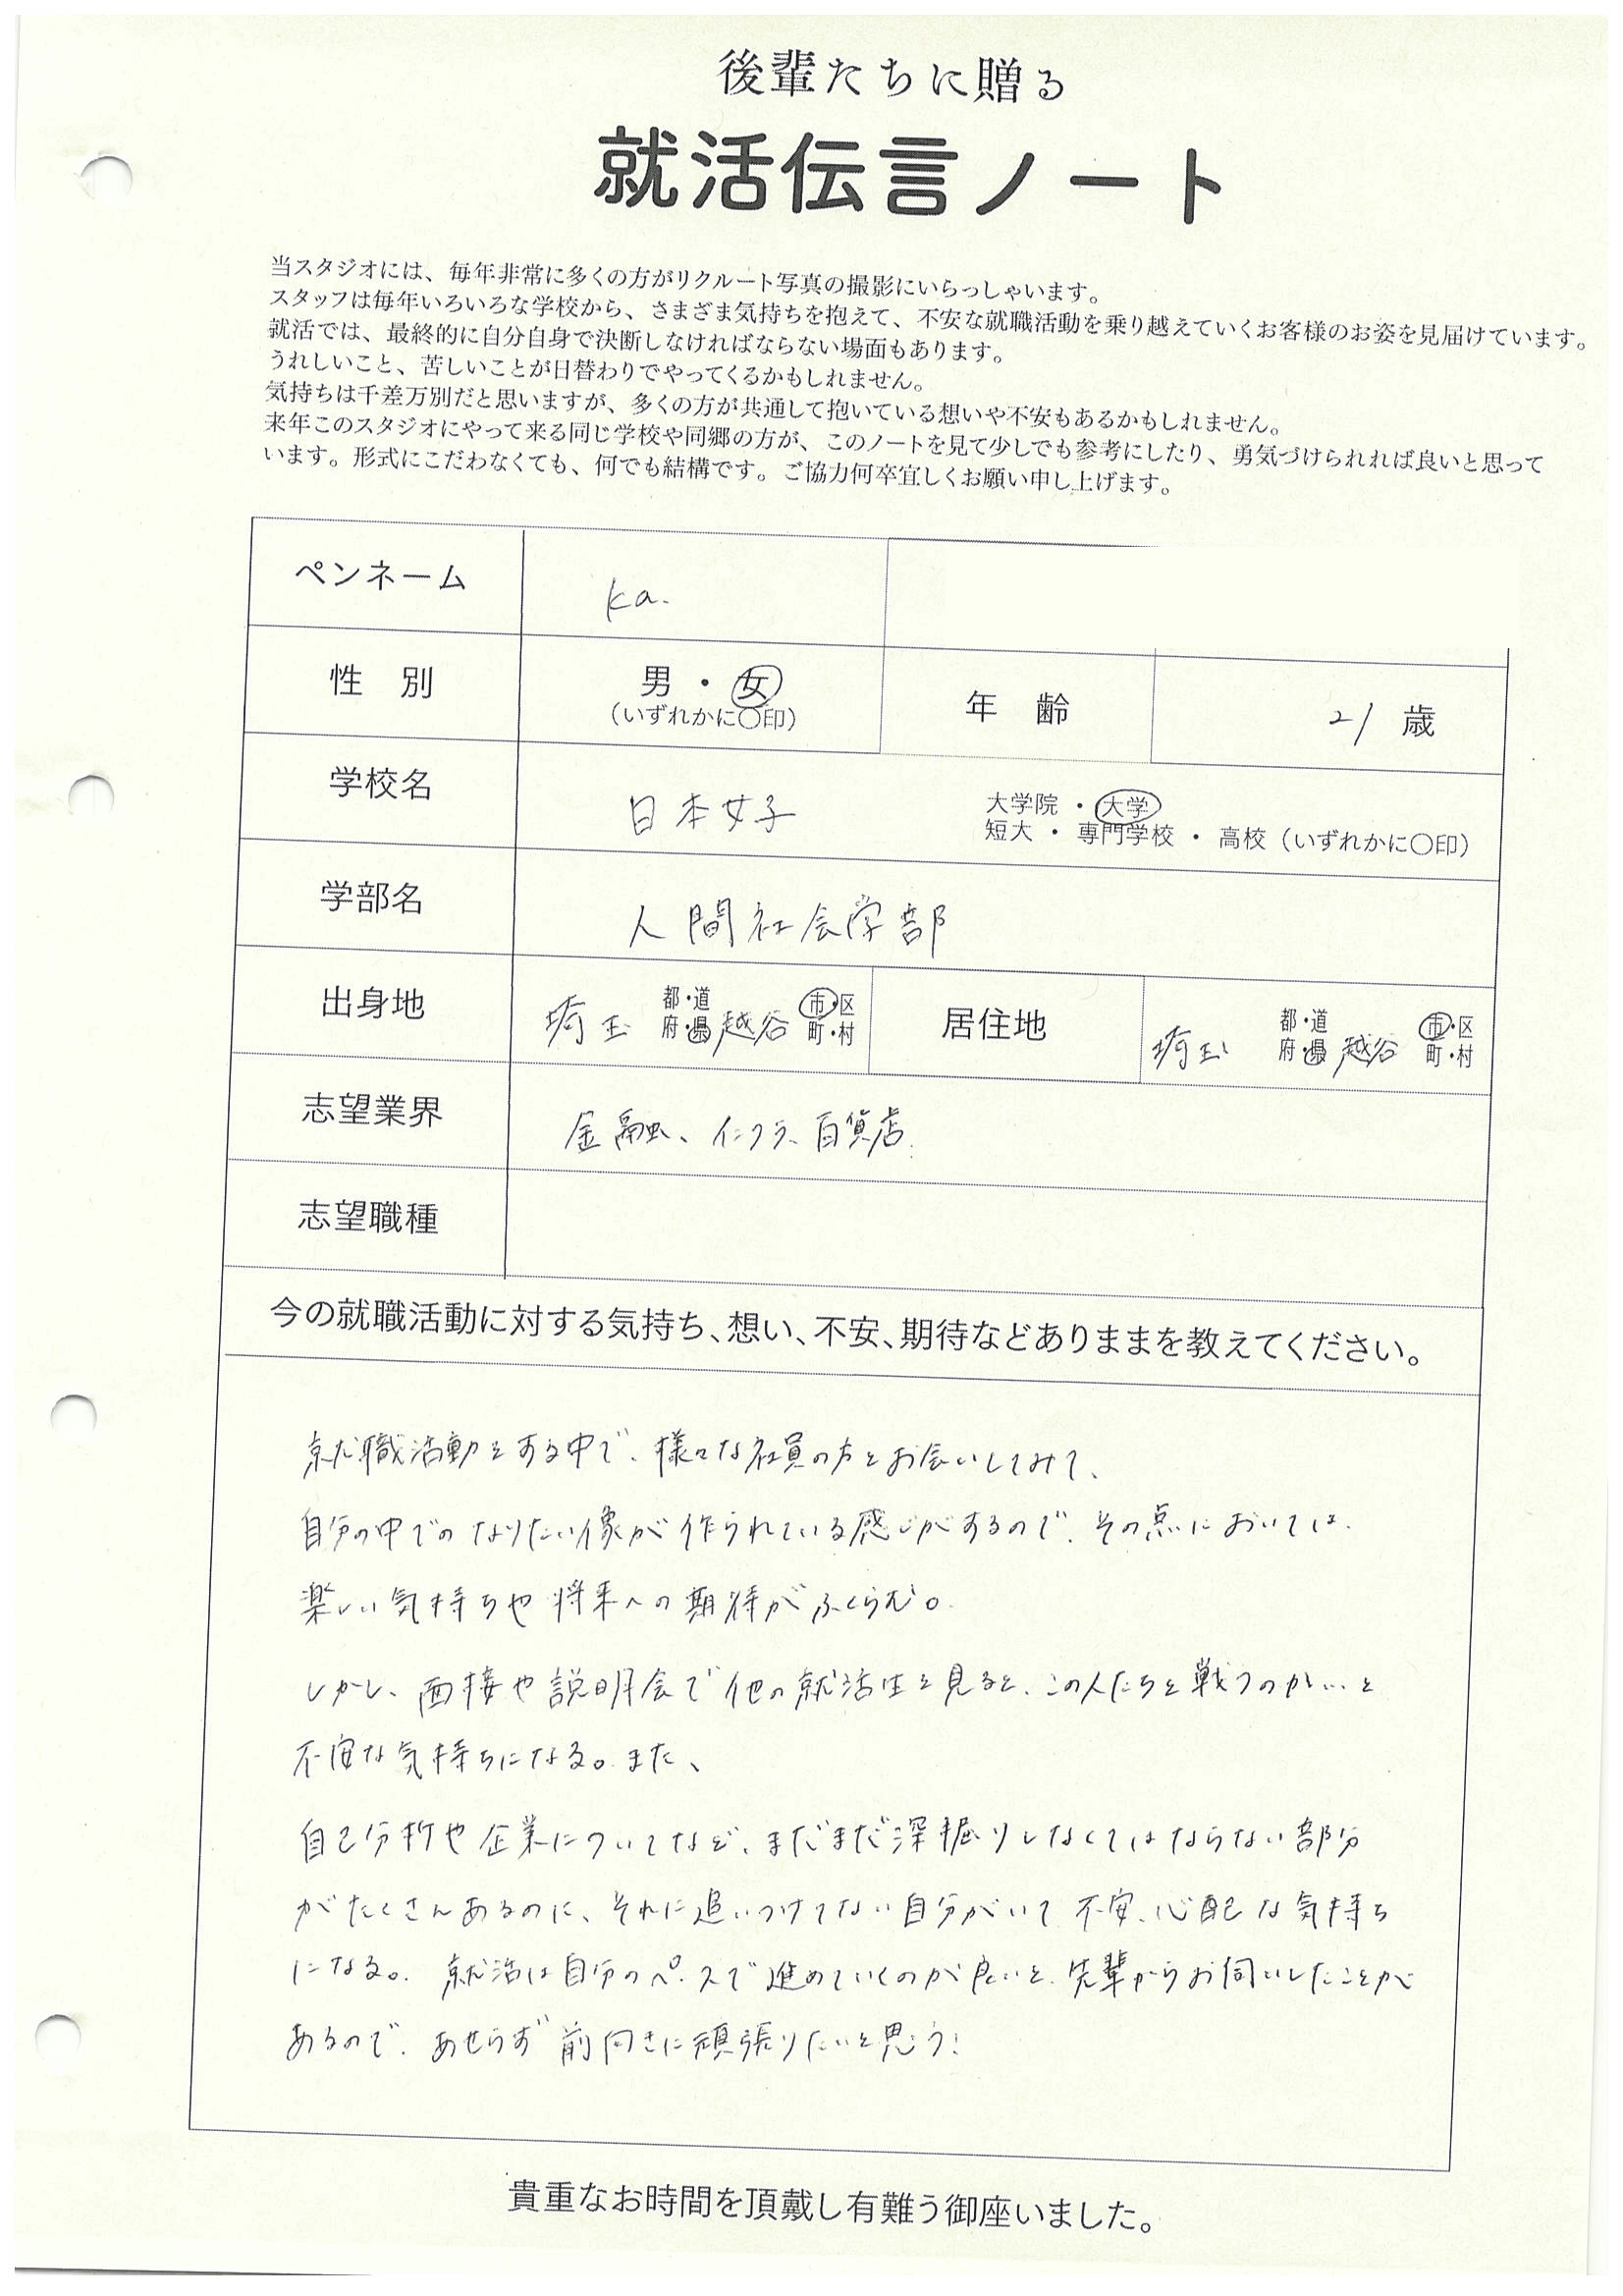 後輩たちに贈る
就活伝言ノート
当スタジオには、毎年非常に多くの方がリクルート写真の撮影にいらっしゃいます。
スタッフは毎年いろいろな学校から、さまざま気持ちを抱えて、不安な就職活動を乗り越えていくお客様のお姿を見届けています。
就活では、最終的に自分自身で決断しなければならない場面もあります。
うれしいこと、苦しいことが日替わりでやってくるかもしれません。
気持ちは千差万別だと思いますが、多くの方が共通して抱いている想いや不安もあるかもしれません。
来年このスタジオにやって来る同じ学校や同郷の方が、このノートを見て少しでも参考にしたり、勇気づけられれば良いと思って
います。形式にこだわなくても、何でも結構です。ご協力何卒宜しくお願い申し上げます。
ペンネーム ka.
性 別 男 ・ 女 (いずれかに〇印) 年 齢 21 歳
学校名 日本女子 大学院 ・ 大学
短大 ・ 専門学校 ・ 高校 (いずれかに〇印)
学部名 人間社会学部
出身地 埼玉 都・道府・県 越谷 市・区町・村 居住地 埼玉 都・道府・県 越谷 市・区町・村
志望業界 金融、インフラ、百貨店.
志望職種
今の就職活動に対する気持ち、想い、不安、期待などありままを教えてください。
就職活動をする中で、様々な社員の方とお会いしてみて、
自分の中でのなりたい像が作られている感じがするので、その点においては、
楽しい気持ちや将来への期待がふくらむ。
しかし、面接や説明会で他の就活生を見ると、この人たちと戦うのか…と
不安な気持ちになる。また、
自己分析や企業についてなど、まだまだ深掘りしなくてはならない部分
がたくさんあるのに、それに追いつけてない自分がいて不安、心配な気持ち
になる。就活は自分のペースで進めていくのが良いと、先輩からお伺いしたことが
あるので、あせらず前向きに頑張りたいと思う!
貴重なお時間を頂戴し有難う御座いました。